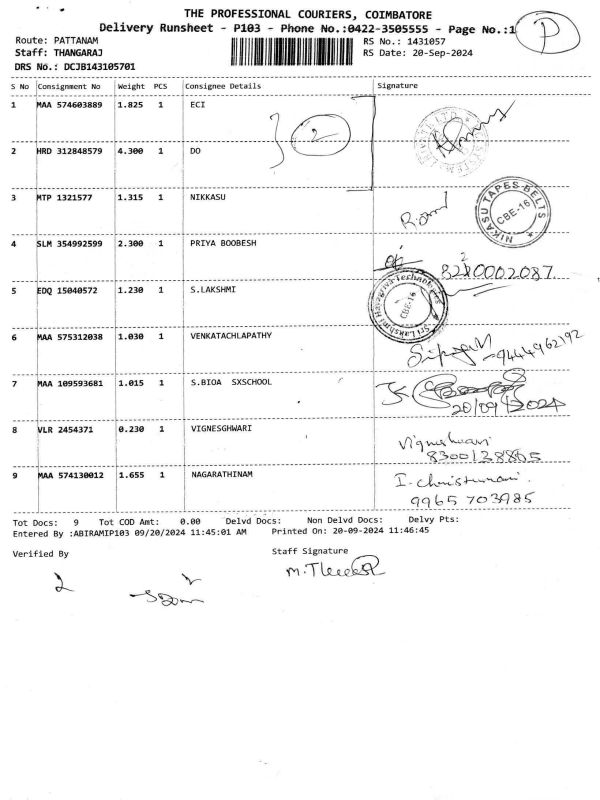 THE PROFESSIONAL COURIERS, COIMBATORE
Delivery Runsheet - P103 - Phone No.:0422-3505555 - Page No.:1
P
Route: PATTANAM
RS No.: 1431057
Staff: THANGARAJ
RS Date: 20-Sep-2024
DRS No.: DCJB143105701
S No Consignment No Weight PCS Consignee Details Signature
1 MAA 574603889 1.825 1 ECI
2
2 HRD 312848579 4.300 1 DO
3 MTP 1321577 1.315 1 NIKKASU
NIKASU TAPES BELTS CBE-16
4 SLM 354992599 2.300 1 PRIYA BOOBESH
5 EDQ 15040572 1.230 1 S.LAKSHMI
Sri Lakshmi Hayagriva Technologies CBE-16
6 MAA 575312038 1.030 1 VENKATACHLAPATHY
9444962192
7 MAA 109593681 1.015 1 S.BIOA SXSCHOOL
20/09/2024
8 VLR 2454371 0.230 1 VIGNESGHWARI
Vigneshwari
8300138865
9 MAA 574130012 1.655 1 NAGARATHINAM
9965 703985
Tot Docs: 9 Tot COD Amt: 0.00 Delvd Docs: Non Delvd Docs: Delvy Pts:
Entered By :ABIRAMIP103 09/20/2024 11:45:01 AM Printed On: 20-09-2024 11:46:45
Verified By
Staff Signature